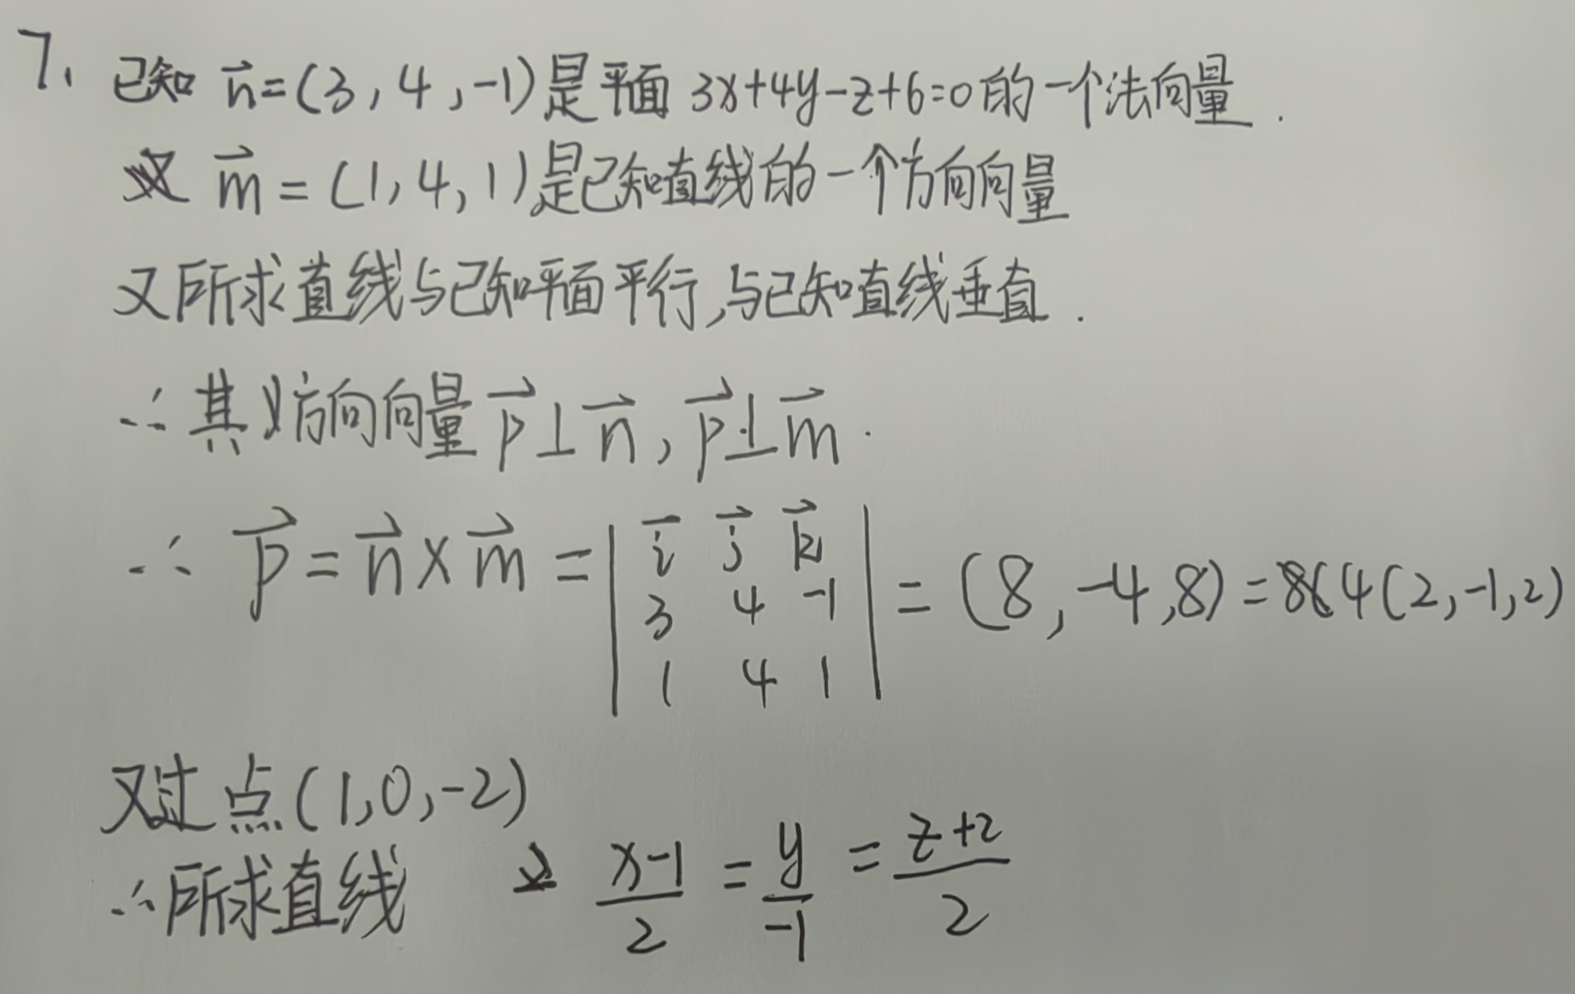 7. 已知 n⃗=(3,4,-1)是平面 3x+4y-z+6=0的一个法向量.
m⃗=(1,4,1)是已知直线的一个方向向量
又所求直线与已知平面平行,与已知直线垂直.
∴其方向向量 p⃗⊥n⃗, p⃗⊥m⃗.
∴ p⃗=n⃗×m⃗=| i⃗ j⃗ k⃗ |=(8,-4,8)=4(2,-1,2)
3 4 -1
1 4 1
又过点(1,0,-2)
∴所求直线 (x-1)/2 = y/(-1) = (z+2)/2